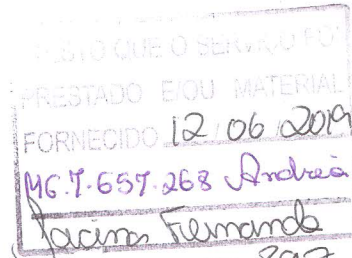 ATESTO QUE O SERVIÇO FOI
PRESTADO E/OU MATERIAL
FORNECIDO 12 06 2019
MG.7.657.268 Andreia
Fernanda